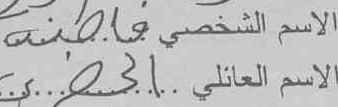 الاسم الشخصي فاطنة
الاسم العائلي